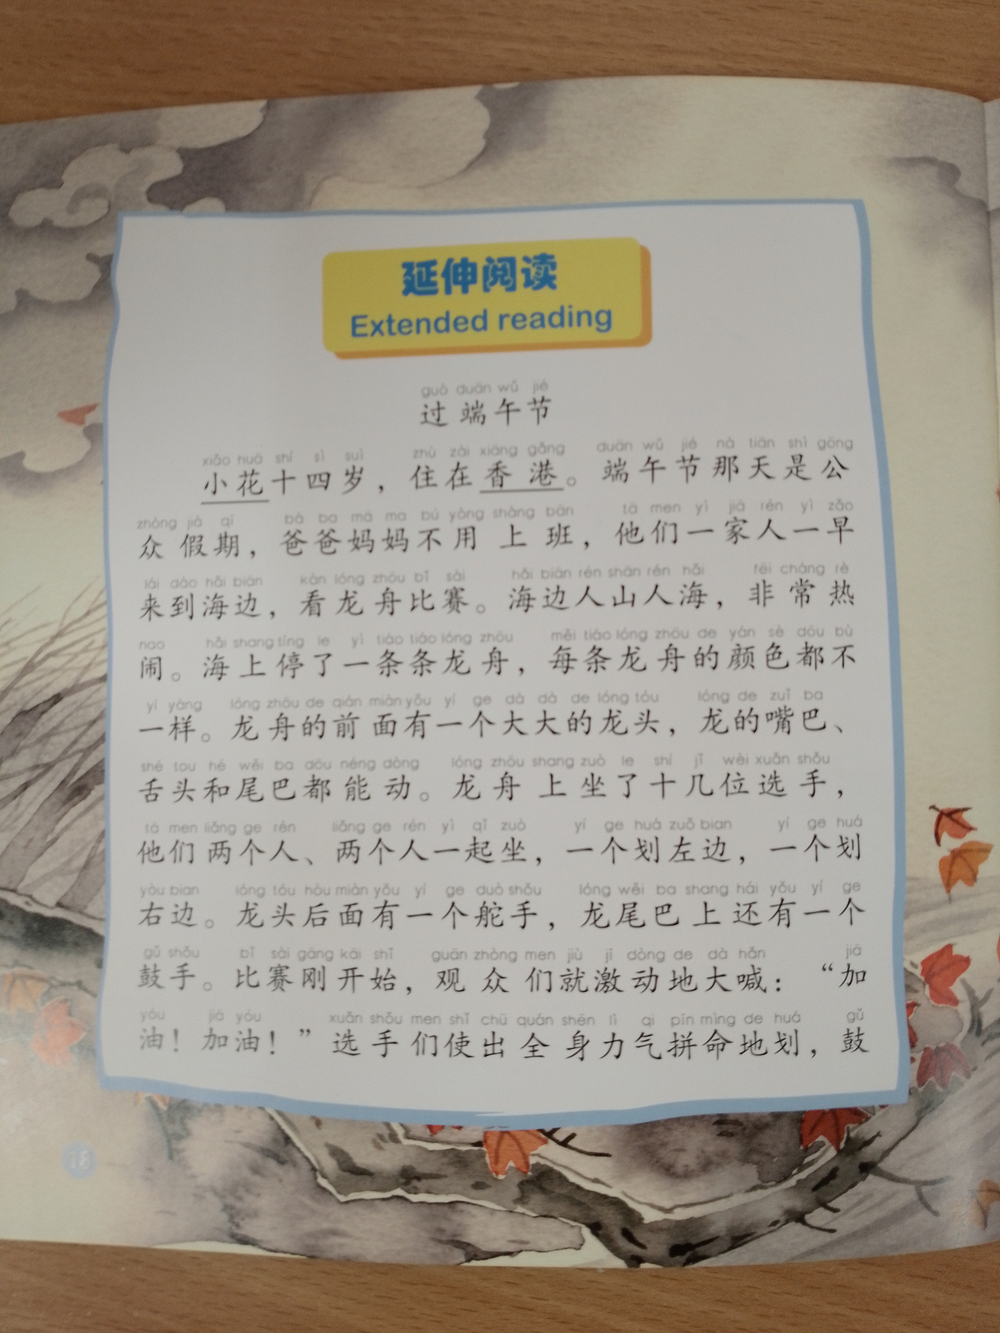 延伸阅读
Extended reading
guò duān wǔ jié
过端午节
xiǎo huā shí sì suì zhù zài xiāng gǎng duān wǔ jié nà tiān shì gōng
小花十四岁，住在香港。端午节那天是公
zhòng jià qī bà ba mā ma bú yòng shàng bān tā men yì jiā rén yì zǎo
众假期，爸爸妈妈不用上班，他们一家人一早
lái dào hǎi biān kàn lóng zhōu bǐ sài hǎi biān rén shān rén hǎi fēi cháng rè
来到海边，看龙舟比赛。海边人山人海，非常热
nao hǎi shang tíng le yì tiáo tiáo lóng zhōu měi tiáo lóng zhōu de yán sè dōu bù
闹。海上停了一条条龙舟，每条龙舟的颜色都不
yí yàng lóng zhōu de qián miàn yǒu yí ge dà dà de lóng tóu lóng de zuǐ ba
一样。龙舟的前面有一个大大的龙头，龙的嘴巴、
shé tou hé wěi ba dōu néng dòng lóng zhōu shang zuò le shí jǐ wèi xuǎn shǒu
舌头和尾巴都能动。龙舟上坐了十几位选手，
tā men liǎng ge rén liǎng ge rén yì qǐ zuò yí ge huá zuǒ bian yí ge huá
他们两个人、两个人一起坐，一个划左边，一个划
yòu bian lóng tóu hòu miàn yǒu yí ge duò shǒu lóng wěi ba shang hái yǒu yí ge
右边。龙头后面有一个舵手，龙尾巴上还有一个
gǔ shǒu bǐ sài gāng kāi shǐ guān zhòng men jiù jī dòng de dà hǎn jiā
鼓手。比赛刚开始，观众们就激动地大喊：“加
yóu jiā yóu xuǎn shǒu men shǐ chū quán shēn lì qi pīn mìng de huá gǔ
油！加油！”选手们使出全身力气拼命地划，鼓
18